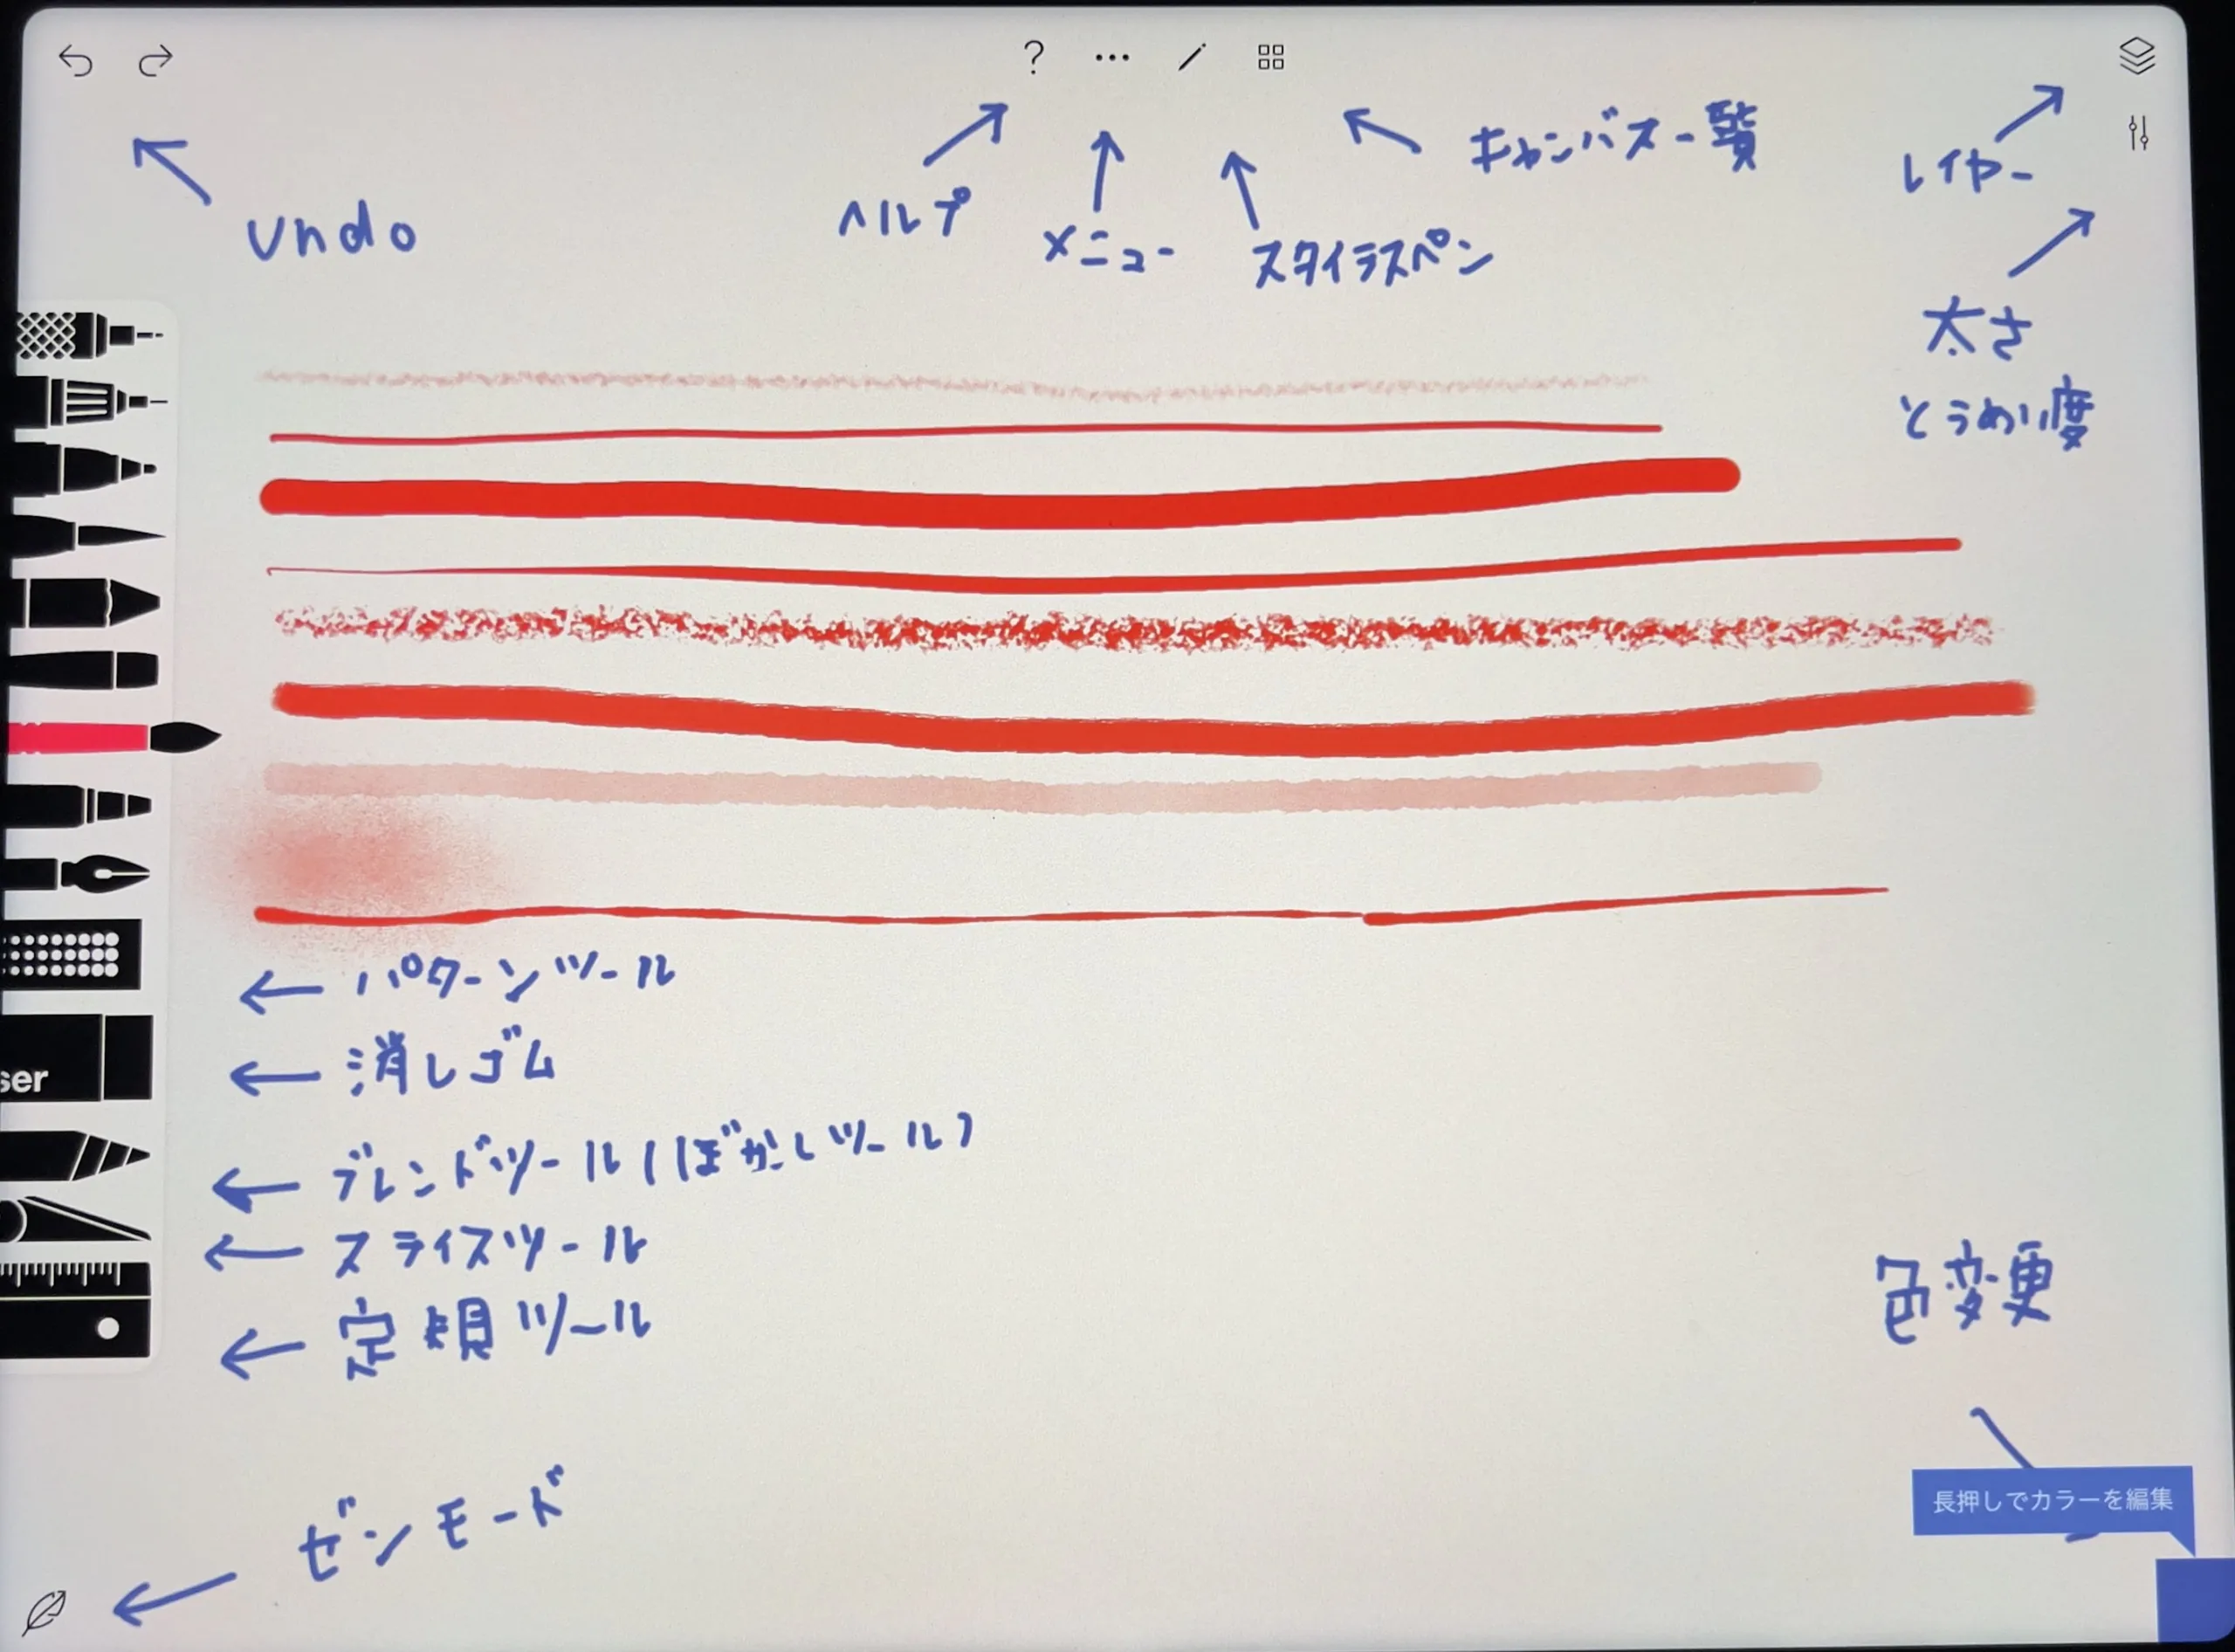 ?
キャンバス一覧
レイヤー
undo
ヘルプ
メニュー
スタイラスペン
太さ
とうめい度
パターンツール
消しゴム
ser
ブレンドツール(ぼかしツール)
スライスツール
定規ツール
色変更
ゼンモード
長押しでカラーを編集